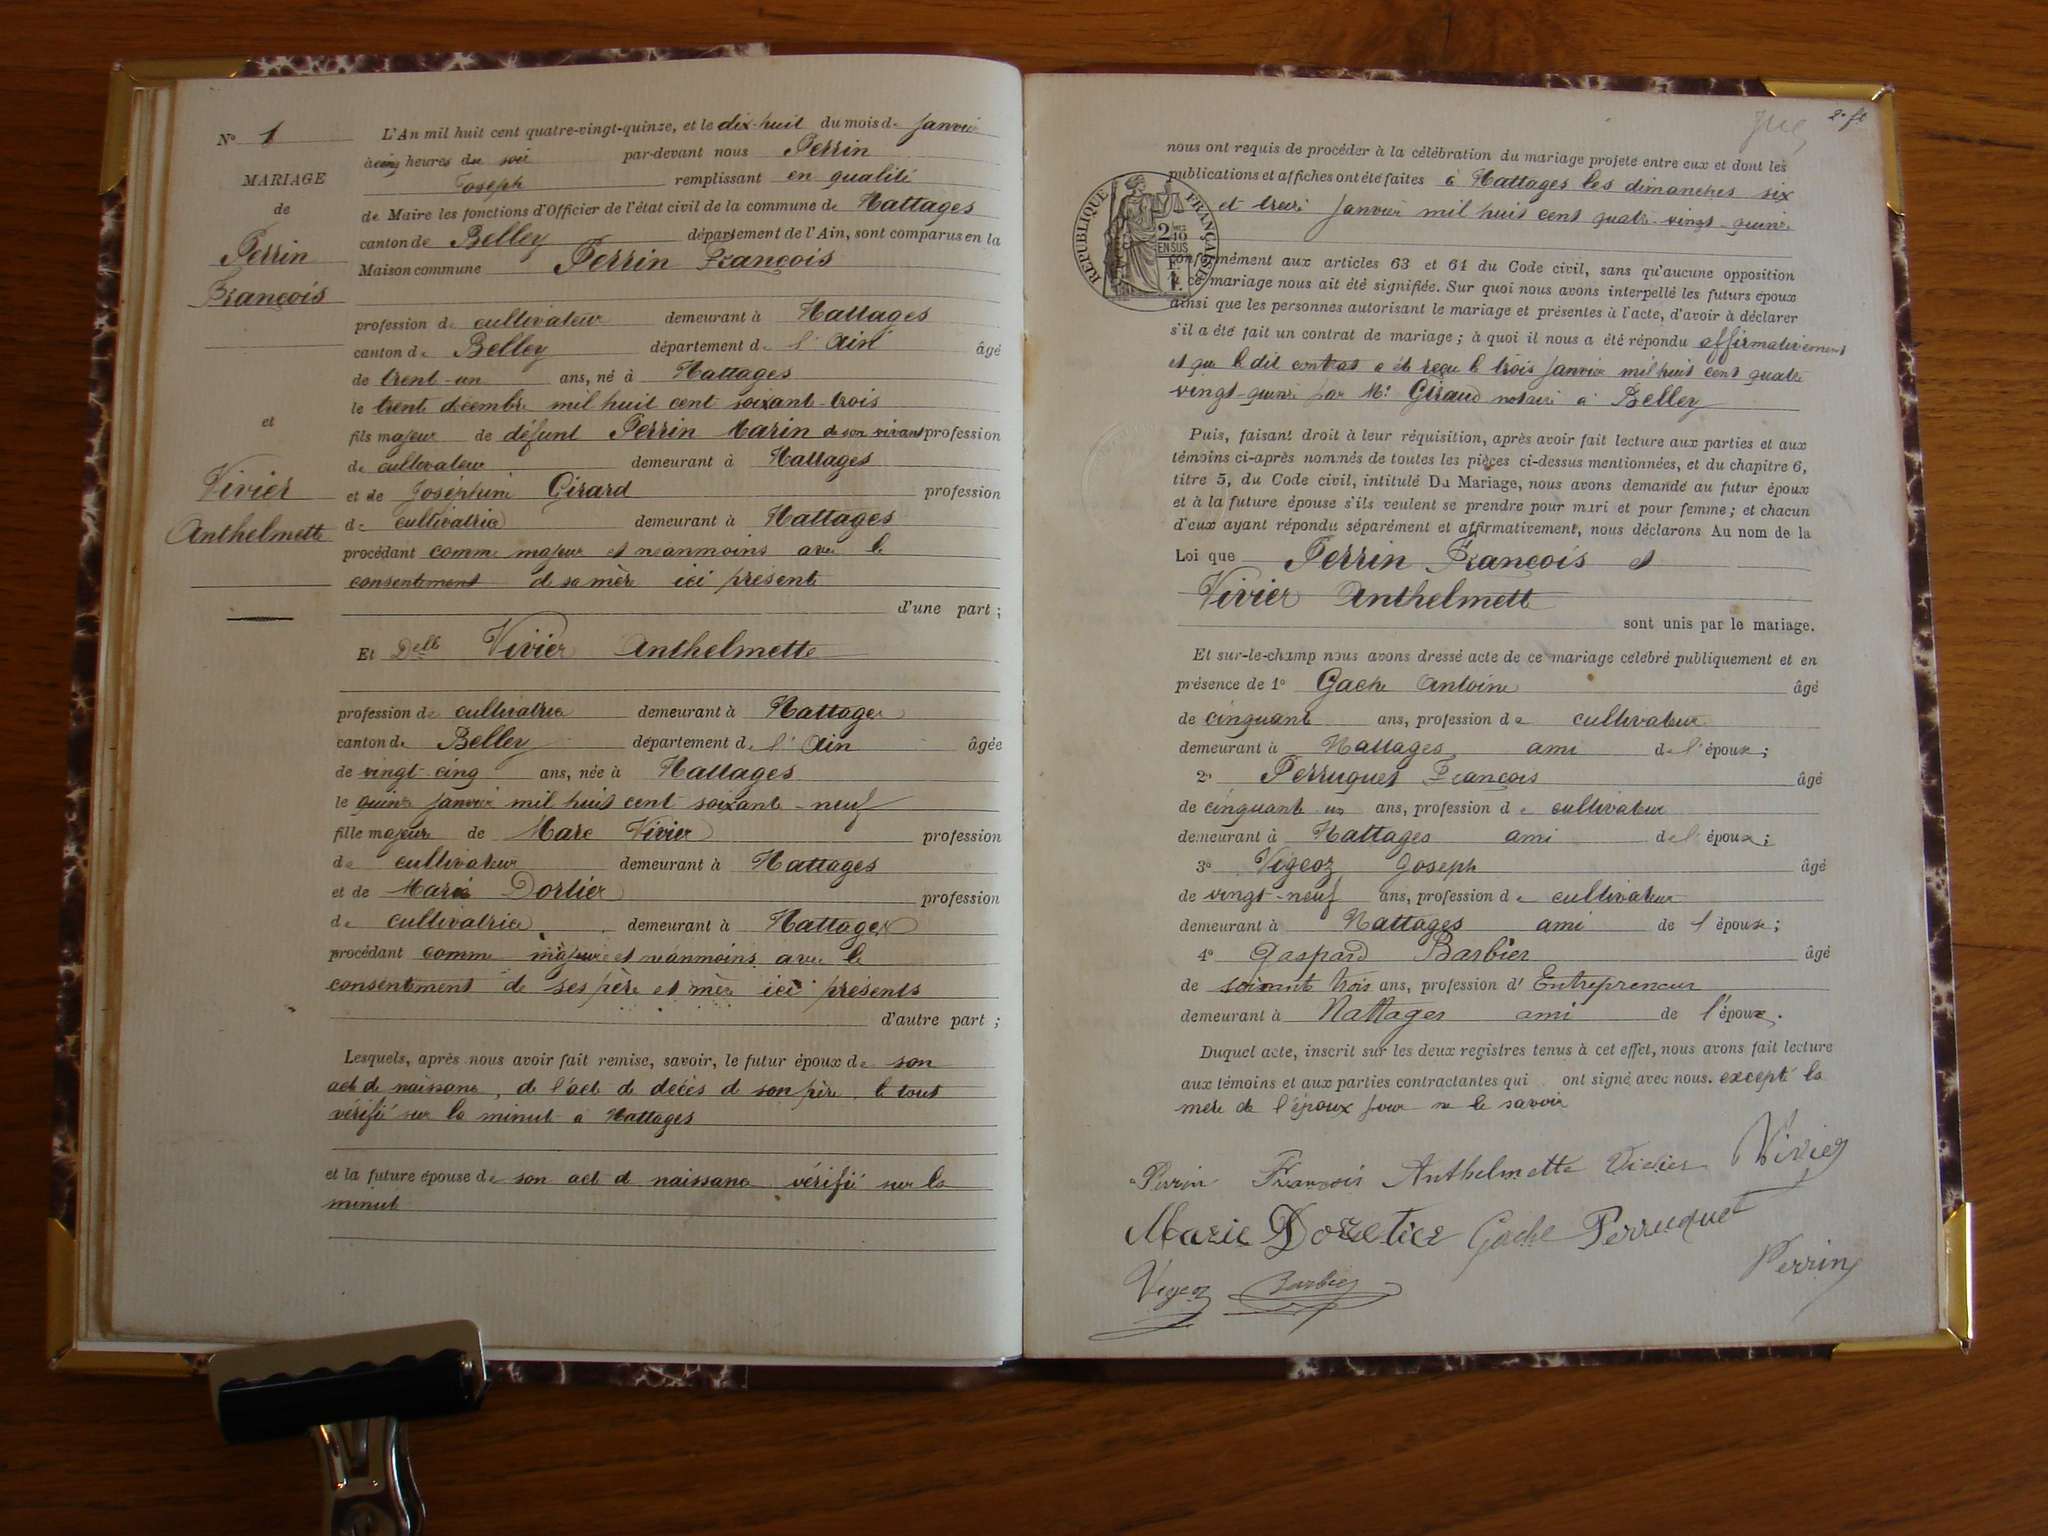 N° 1
MARIAGE
de
Perrin
François
et
Vivier
Anthelmette
L'An mil huit cent quatre-vingt-quinze, et le dix-huit du mois de Janvier
à cinq heures du soir par-devant nous Perrin
Joseph remplissant en qualité
de Maire les fonctions d'Officier de l'état civil de la commune de Nattages
canton de Belley département de l'Ain, sont comparus en la
Maison commune Perrin François
profession de cultivateur demeurant à Nattages
canton de Belley département de l'Ain âgé
de trente-un ans, né à Nattages
le trente décembre mil huit cent soixante-trois
fils majeur de défunt Perrin Marin de son vivant profession
de cultivateur demeurant à Nattages
et de Joséphine Girard profession
de cultivatrice demeurant à Nattages
procédant comme majeur et néanmoins avec le
consentement de sa mère ici présente
d'une part ;
Et Delle Vivier Anthelmette
profession de cultivatrice demeurant à Nattages
canton de Belley département de l'Ain âgée
de vingt-cinq ans, née à Nattages
le quinze janvier mil huit cent soixante-neuf
fille majeure de Marc Vivier profession
de cultivateur demeurant à Nattages
et de Marie Dortier profession
de cultivatrice demeurant à Nattages
procédant comme majeure et néanmoins avec le
consentement de ses père et mère ici présents
d'autre part ;
Lesquels, après nous avoir fait remise, savoir, le futur époux de son
acte de naissance, de l'acte de décès de son père, le tout
vérifié sur la minute à Nattages
et la future épouse de son acte de naissance vérifié sur la
minute
2e ft
nous ont requis de procéder à la célébration du mariage projeté entre eux et dont les
publications et affiches ont été faites à Nattages les dimanches six
et treize Janvier mil huit cent quatre-vingt-quinze
RÉPUBLIQUE FRANÇAISE
2/10 EN SUS
conformément aux articles 63 et 64 du Code civil, sans qu'aucune opposition
à ce mariage nous ait été signifiée. Sur quoi nous avons interpellé les futurs époux
ainsi que les personnes autorisant le mariage et présentes à l'acte, d'avoir à déclarer
s'il a été fait un contrat de mariage ; à quoi il nous a été répondu affirmativement
et que le dit contrat a été reçu le trois Janvier mil huit cent quatre
vingt-quinze par Me Giraud notaire à Belley
Puis, faisant droit à leur réquisition, après avoir fait lecture aux parties et aux
témoins ci-après nommés de toutes les pièces ci-dessus mentionnées, et du chapitre 6,
titre 5, du Code civil, intitulé Du Mariage, nous avons demandé au futur époux
et à la future épouse s'ils veulent se prendre pour mari et pour femme ; et chacun
d'eux ayant répondu séparément et affirmativement, nous déclarons Au nom de la
Loi que Perrin François et
Vivier Anthelmette
sont unis par le mariage.
Et sur-le-champ nous avons dressé acte de ce mariage célébré publiquement et en
présence de 1° Gache Antoine âgé
de cinquante ans, profession de cultivateur
demeurant à Nattages ami de l'époux ;
2° Perruquet François âgé
de cinquante un ans, profession de cultivateur
demeurant à Nattages ami de l'époux ;
3° Vigeoz Joseph âgé
de vingt-neuf ans, profession de cultivateur
demeurant à Nattages ami de l'épouse ;
4° Gaspard Barbier âgé
de soixante trois ans, profession d'Entrepreneur
demeurant à Nattages ami de l'épouse.
Duquel acte, inscrit sur les deux registres tenus à cet effet, nous avons fait lecture
aux témoins et aux parties contractantes qui ont signé avec nous. excepté la
mère de l'époux pour ne le savoir
Perrin François Anthelmette Vivier Vivier
Marie Doretier Gache Perruquet
Vigeoz Barbier Perrin